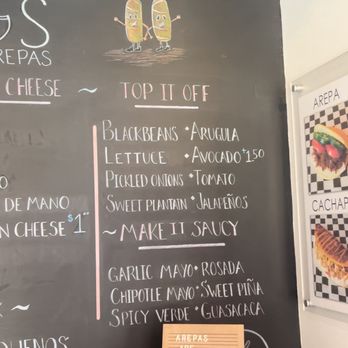 GS
REPAS
CHEESE ~ TOP IT OFF
BLACKBEANS • ARUGULA
LETTUCE • AVOCADO +1.50
PICKLED ONIONS • TOMATO
DE MANO
SWEET PLANTAIN • JALAPEÑOS
N CHEESE $1
~ MAKE IT SAUCY
GARLIC MAYO • ROSADA
CHIPOTLE MAYO • SWEET PIÑA
SPICY VERDE • GUASACACA
AREPAS
ARE
AREPA
CACHAP